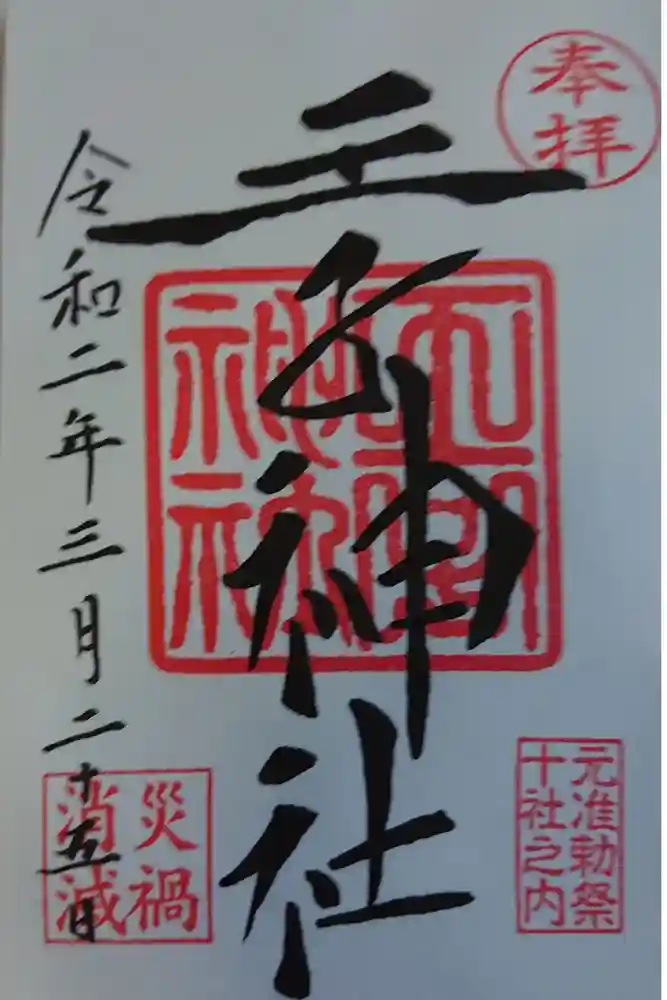 奉拝
王子神社
元准勅祭
十社之内
令和二年三月二十五日
災禍
消滅